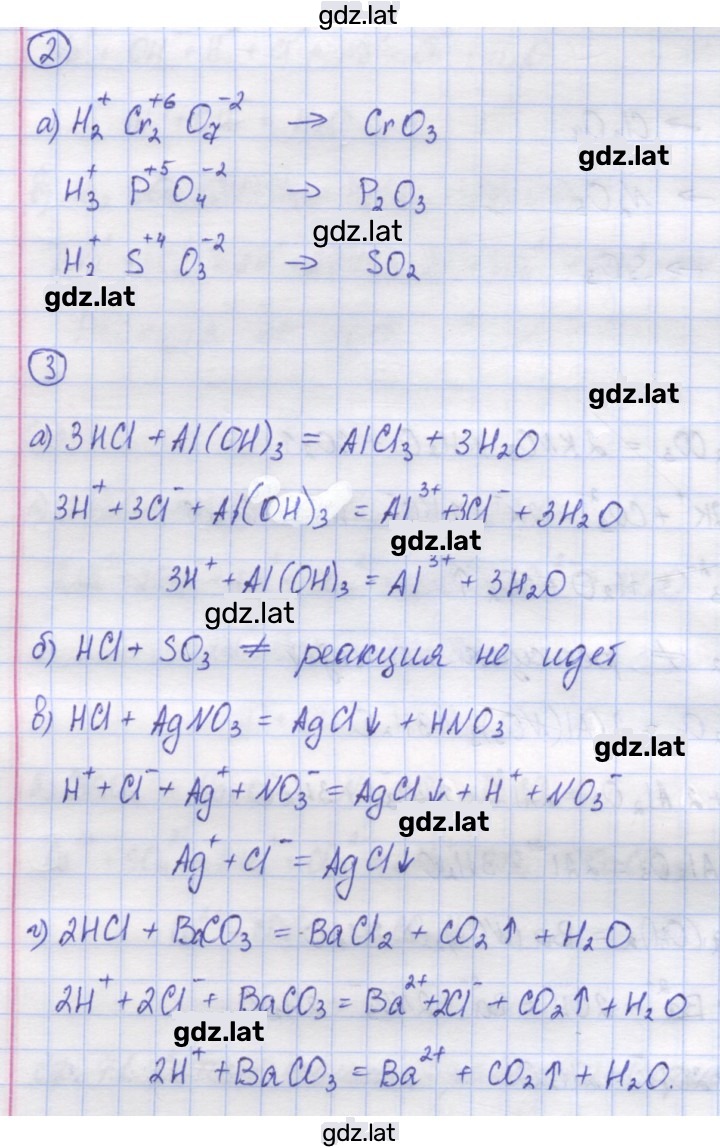 gdz.lat
2
а) H₂⁺ Cr₂⁺⁶ O₇⁻² → CrO₃
gdz.lat
H₃⁺ P⁺⁵ O₄⁻² → P₂O₃
gdz.lat
H₂⁺ S⁺⁴ O₃⁻² → SO₂
gdz.lat
3
gdz.lat
а) 3HCl + Al(OH)₃ = AlCl₃ + 3H₂O
3H⁺ + 3Cl⁻ + Al(OH)₃ = Al³⁺ + 3Cl⁻ + 3H₂O
gdz.lat
3H⁺ + Al(OH)₃ = Al³⁺ + 3H₂O
gdz.lat
б) HCl + SO₃ ≠ реакция не идет
в) HCl + AgNO₃ = AgCl↓ + HNO₃
gdz.lat
H⁺ + Cl⁻ + Ag⁺ + NO₃⁻ = AgCl↓ + H⁺ + NO₃⁻
gdz.lat
Ag⁺ + Cl⁻ = AgCl↓
г) 2HCl + BaCO₃ = BaCl₂ + CO₂↑ + H₂O
2H⁺ + 2Cl⁻ + BaCO₃ = Ba²⁺ + 2Cl⁻ + CO₂↑ + H₂O
gdz.lat
2H⁺ + BaCO₃ = Ba²⁺ + CO₂↑ + H₂O.
gdz.lat